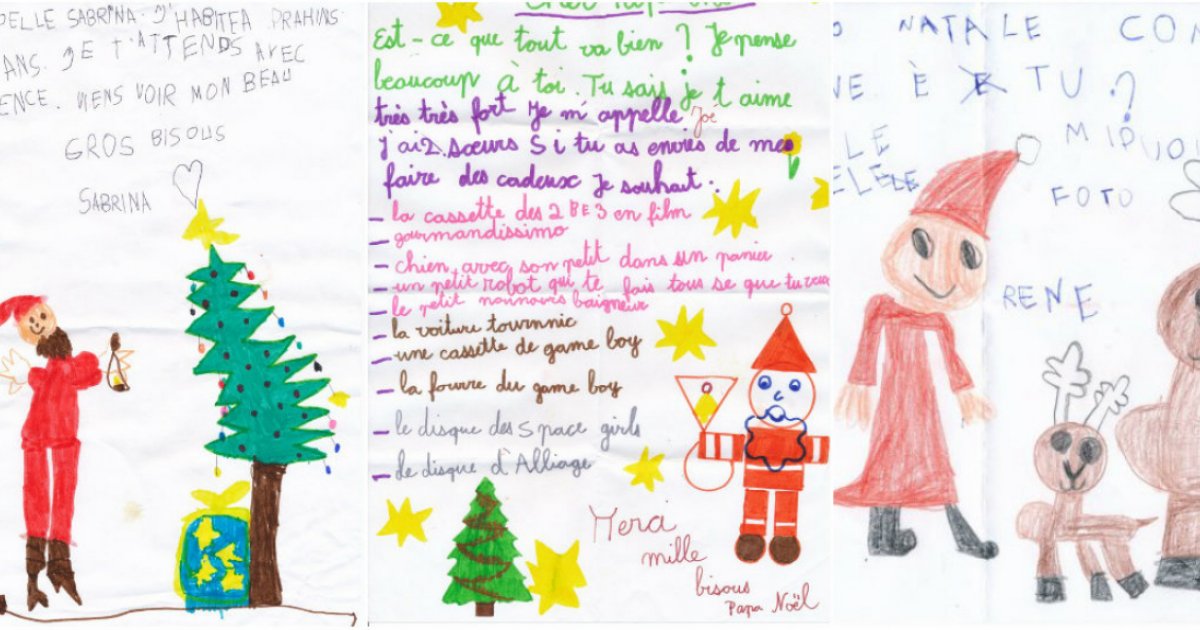 PELLE SABRINA. J'HABITE A PRAHINS
ANS. JE T'ATTENDS AVEC
ENCE. VIENS VOIR MON BEAU
GROS BISOUS
SABRINA
Est-ce que tout va bien ? Je pense
beaucoup à toi. Tu sais je t'aime
très très fort Je m'appelle Joe
j'ai 2 sœurs Si tu as envies de mes
faire des cadeux je souhait :
- la cassette des 2 BE 3 en film
gourmandissimo
- chien avec son petit dans un panier
- un petit robot qui te fais tous se que tu veux
le petit nounours baigneur
- la voiture tournnic
- une cassette de game boy
- la fourre du game boy
- le disque des Space girls
- le disque d'Alliage
Mera
mille
bisous
Papa Noël
NATALE CO
E È TU ?
LE
ELELE
MI
FOTO
RENE